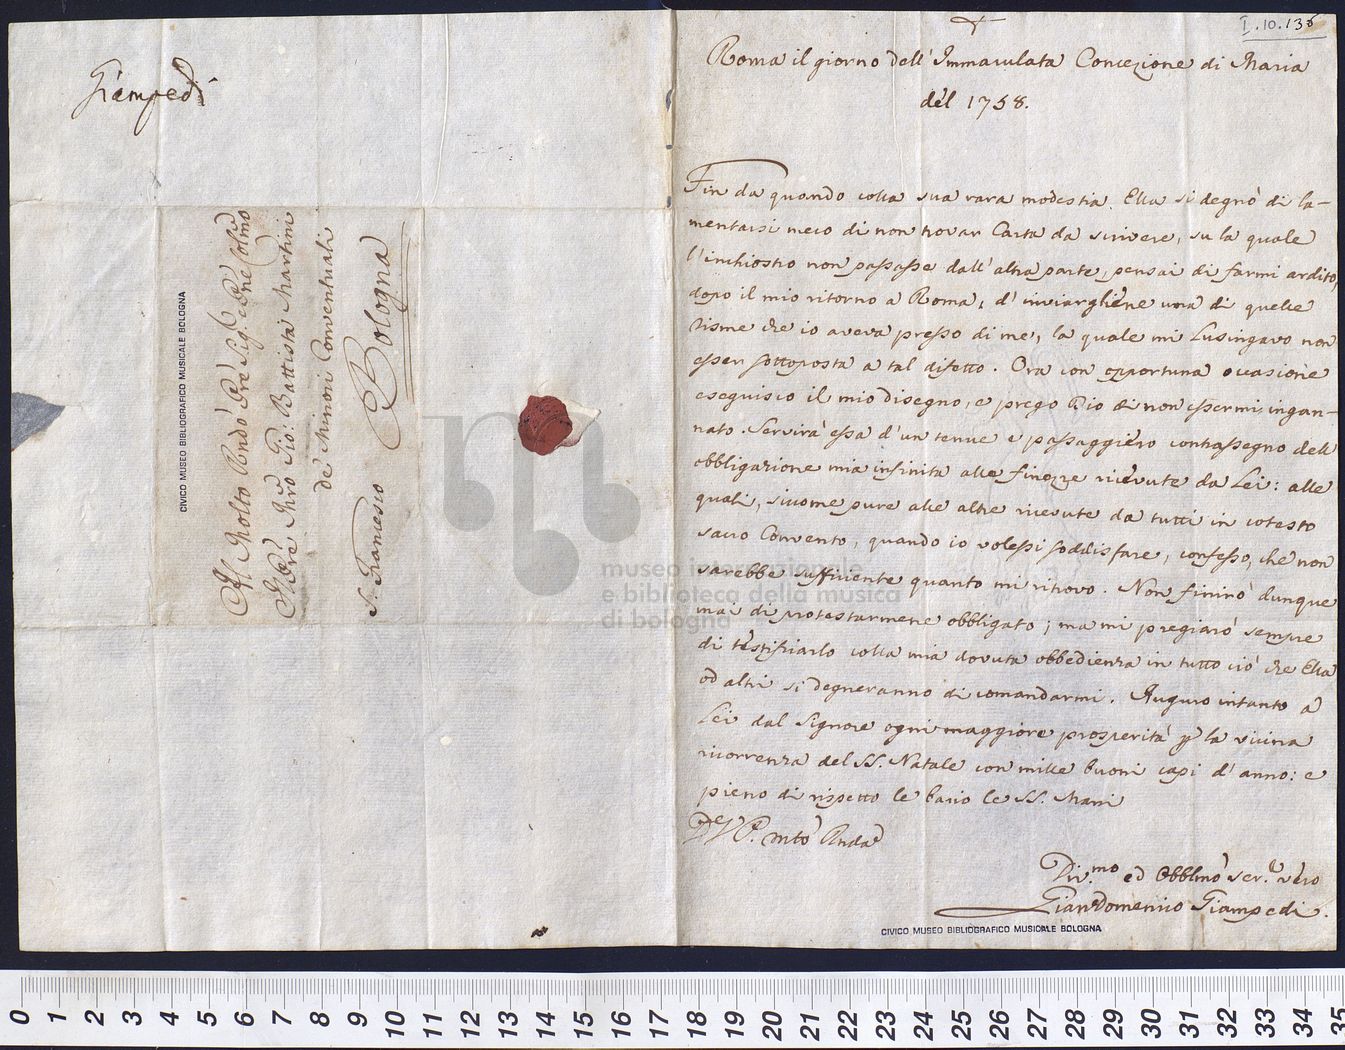 Giampedi
Al Molto Rndo Pre Sig.e e Pre Colmo
Il Pre Mro Gio: Battista Martini
de' Minori Conventuali
S. Francesco Bologna
CIVICO MUSEO BIBLIOGRAFICO MUSICALE BOLOGNA
I.10.138
Roma il giorno dell'Immaculata Concezione di Maria
del 1758.
Fin da quando colla sua rara modestia Ella si degnò di la-
mentarsi meco di non trovar Carta da scrivere, su la quale
l'inchiostro non passasse dall'altra parte, pensai di farmi ardito,
dopo il mio ritorno a Roma, d'inviarghiene una di quelle
Risme che io aveva presso di me, la quale mi lusingavo non
esser sottoposta a tal difetto. Ora con opportuna occasione
eseguisco il mio disegno, e prego Dio di non essermi ingan-
nato. Servirà essa d'un tenue e passaggiero contrassegno dell'
obbligazione mia infinita alle finezze ricevute da Lei: alle
quali, siccome pure alle altre ricevute da tutti in cotesto
sacro Convento, quando io volessi soddisfare, confesso, che non
sarebbe sufficiente quanto mi ritrovo. Non finirò dunque
mai di protestarmene obbligato; ma mi pregiarò sempre
di testificarlo colla mia dovuta obbedienza in tutto ciò che Ella
od altri si degneranno di comandarmi. Auguro intanto a
Lei dal Signore ogni maggiore prosperità per la vicina
ricorrenza del SS. Natale con mille buoni capi d'anno: e
pieno di rispetto le bacio le SS. Mani
D V. P. Mto Rnda
Div.mo ed Obblmo ser.e vero
GianDomenico Giampedi.
CIVICO MUSEO BIBLIOGRAFICO MUSICALE BOLOGNA
museo internazionale
e biblioteca della musica
di bologna
0 1 2 3 4 5 6 7 8 9 10 11 12 13 14 15 16 17 18 19 20 21 22 23 24 25 26 27 28 29 30 31 32 33 34 35